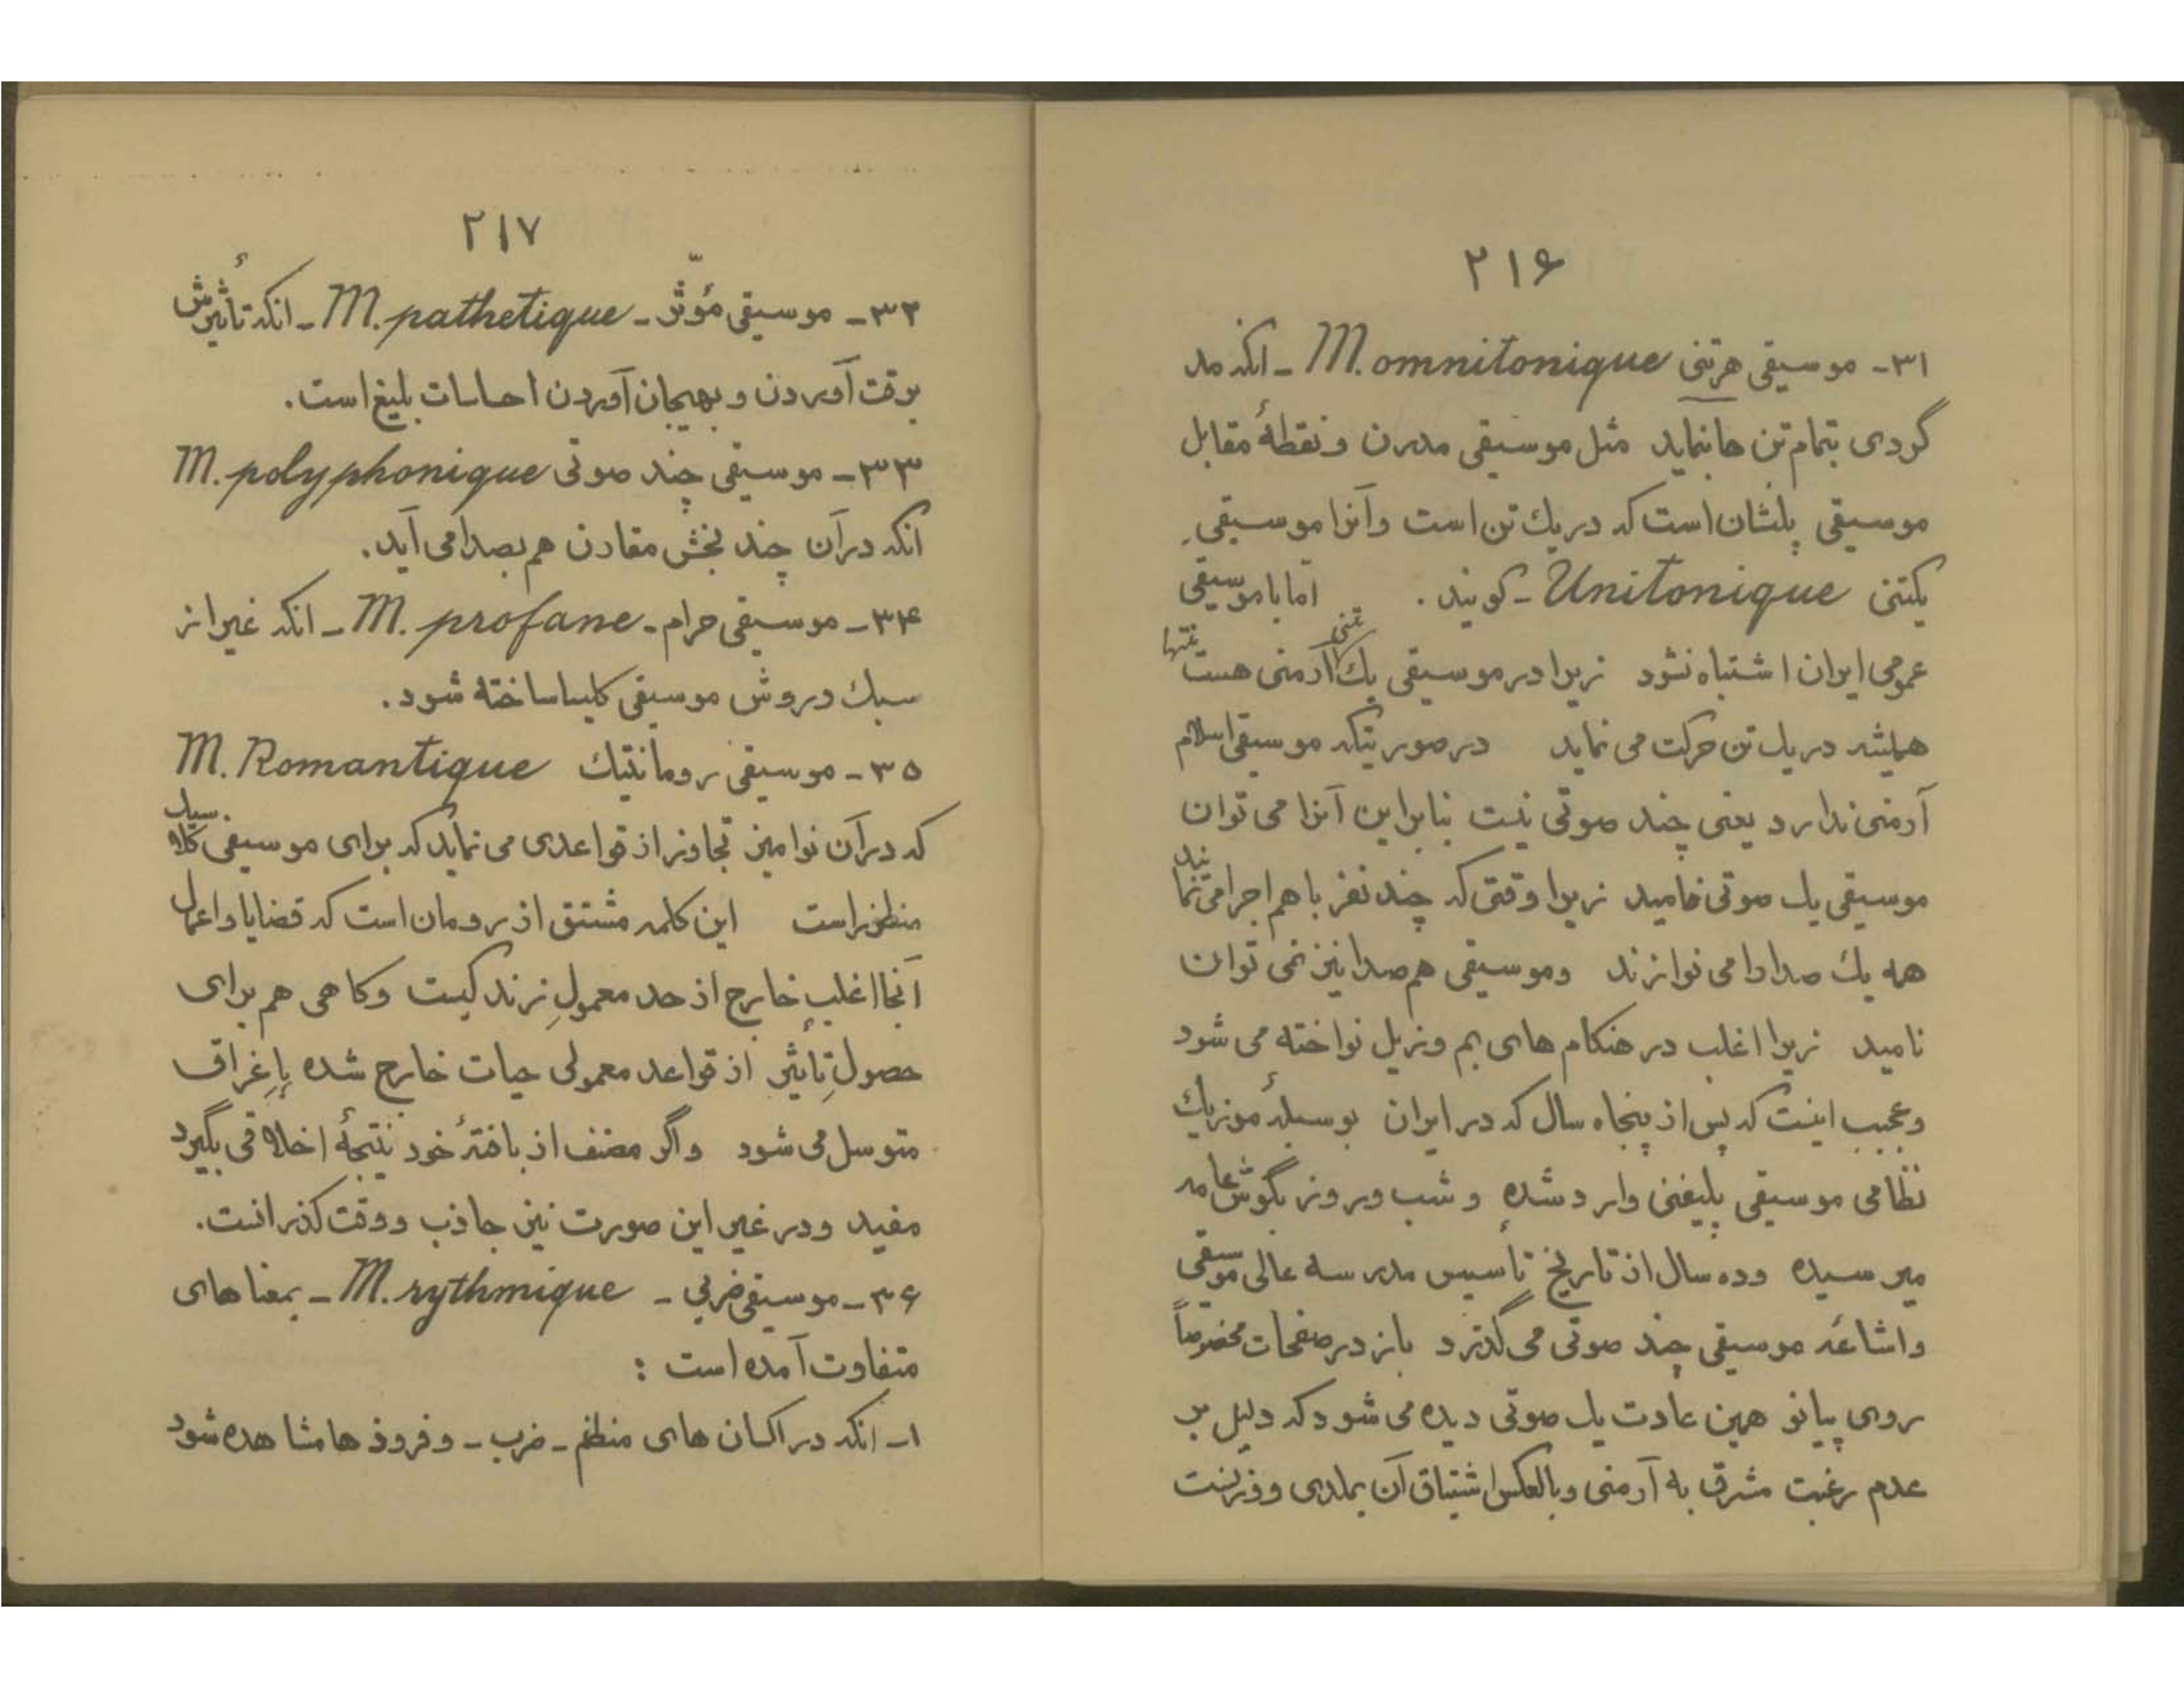 ۲۱۶
۳۱- موسیقی هرتنی M. omnitonique - انکه مد
گردی بتمام تن ها بنماید مثل موسیقی مدرن و نقطهٔ مقابل
موسیقی پلنشان است که در یک تن است و آنرا موسیقی
یکتنی Unitonique - کویند . اما با موسیقی
عمومی ایران اشتباه نشود زیرا در موسیقی یک تنی آرمنی هست منتها
همیشه در یک تن حرکت می نماید در صورتیکه موسیقی اسلام
آرمنی ندارد یعنی چند صوتی نیست بنابراین آنرا می توان
موسیقی یک صوتی نامید زیرا وقتی که چند نفر با هم اجرا می نمایند
همه یک صدا را می نوازند و موسیقی هم صدا نیز نمی توان
نامید زیرا اغلب در هنکام های بم و زیل نواخته می شود
و عجیب اینست که پس از پنجاه سال که در ایران بوسیلهٔ موزیک
نظامی موسیقی پلیفنی وارد شده و شب و روز بگوش عامه
میرسیده و ده سال از تاریخ تأسیس مدرسه عالی موسیقی
و اشاعه موسیقی چند صوتی می گذرد باز در صفحات مخصوصاً
روی پیانو همین عادت یک صوتی دیده می شود که دلیل بر
عدم رغبت مشرق به آرمنی و بالعکس اشتیاق آن بملدی و وزنست
۲۱۷
۳۲- موسیقی مؤثر - M. pathetique - انکه تأثیرش
برقت آوردن و بهیجان آوردن احساسات بلیغ است.
۳۳- موسیقی چند صوتی M. polyphonique
انکه در آن چند بخش مقارن هم بصدا می آید.
۳۴- موسیقی حرام - M. profane - انکه غیر از
سبک و روش موسیقی کلیسا ساخته شود.
۳۵- موسیقی رومانتیک M. Romantique
که در آن نوامیز تجاوز از قواعدی می نماید که برای موسیقی کلاسیک
منظور است این کلمه مشتق از رومان است که قضایا و اعمال
آنجا اغلب خارج از حد معمولِ زندکیست و کاهی هم برای
حصولِ تأثیر از قواعد معمولی حیات خارج شده بإغراق
متوسل می شود و اگر مصنف از بافتهٔ خود نتیجهٔ اخلاقی بگیرد
مفید و در غیر این صورت نیز جاذب و وقت کذرانست.
۳۶- موسیقی ضربی - M. rythmique - بمعناهای
متفاوت آمده است :
۱- انکه در اکسان های منظم - ضرب - و فرود ها مشاهده شود